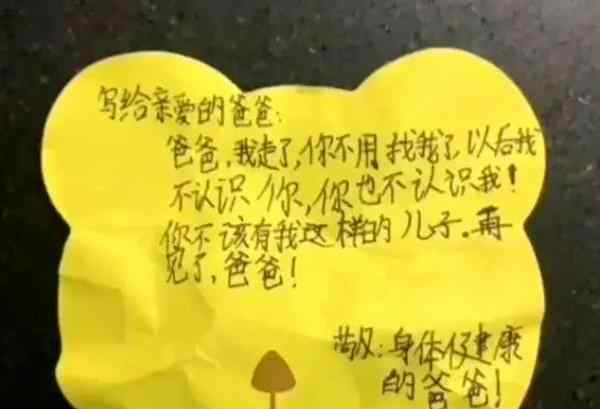 写给亲爱的爸爸:
爸爸,我走了,你不用找我了,以后我
不认识你,你也不认识我!
你不该有我这样的儿子.再
见了,爸爸!
:身体健康
的爸爸!